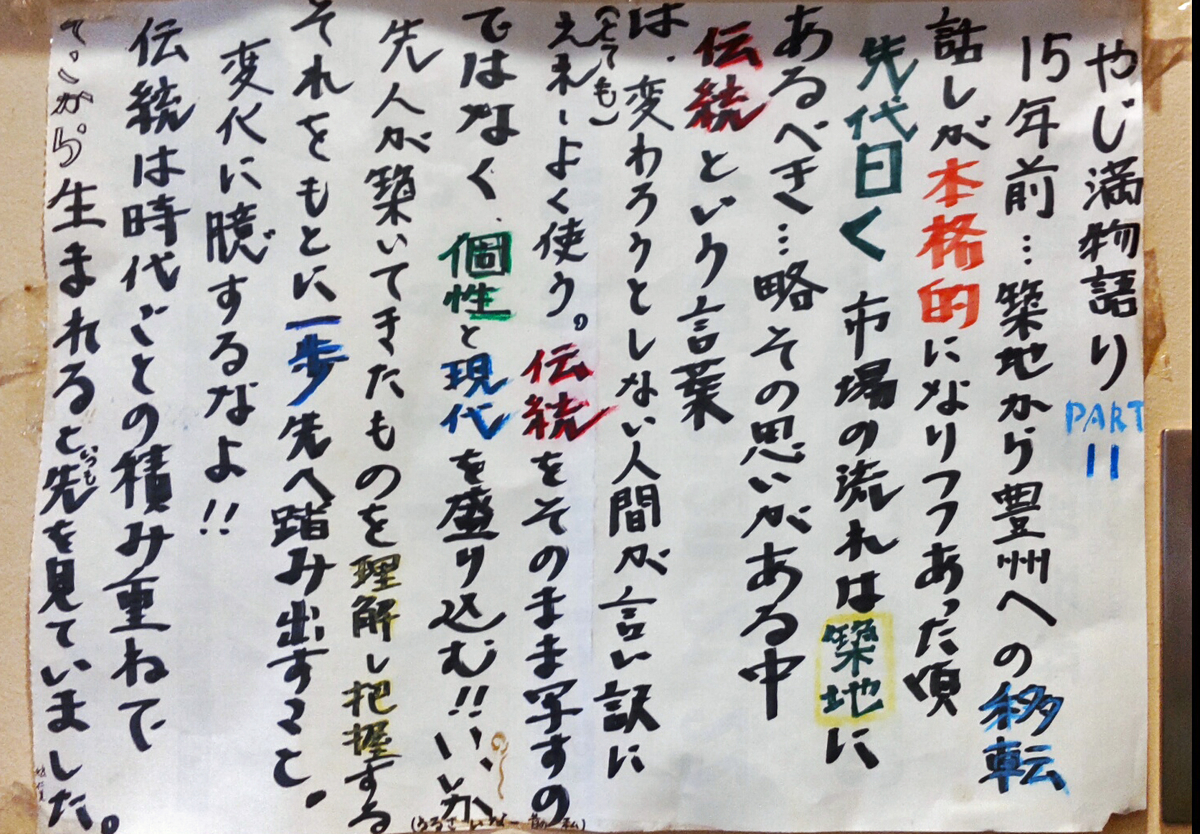 やじ満物語り PART II
15年前…築地から豊洲への移転
話しが本格的になりつつあった頃
先代曰く 市場の流れは築地に
あるべき…略その思いがある中
伝統という言葉
は、変わろうとしない人間が言い訳に
(とても)
えれーよく使う。伝統をそのまま写すの
ではなく、個性と現代を盛り込む!!いいか、
の〜
先人が築いてきたものを理解し把握する
それをもとに一歩先へ踏み出すこと。
変化に臆するなよ!!
伝統は時代ごとの積み重ねで
そこから生まれると先を見ていました。
いつも